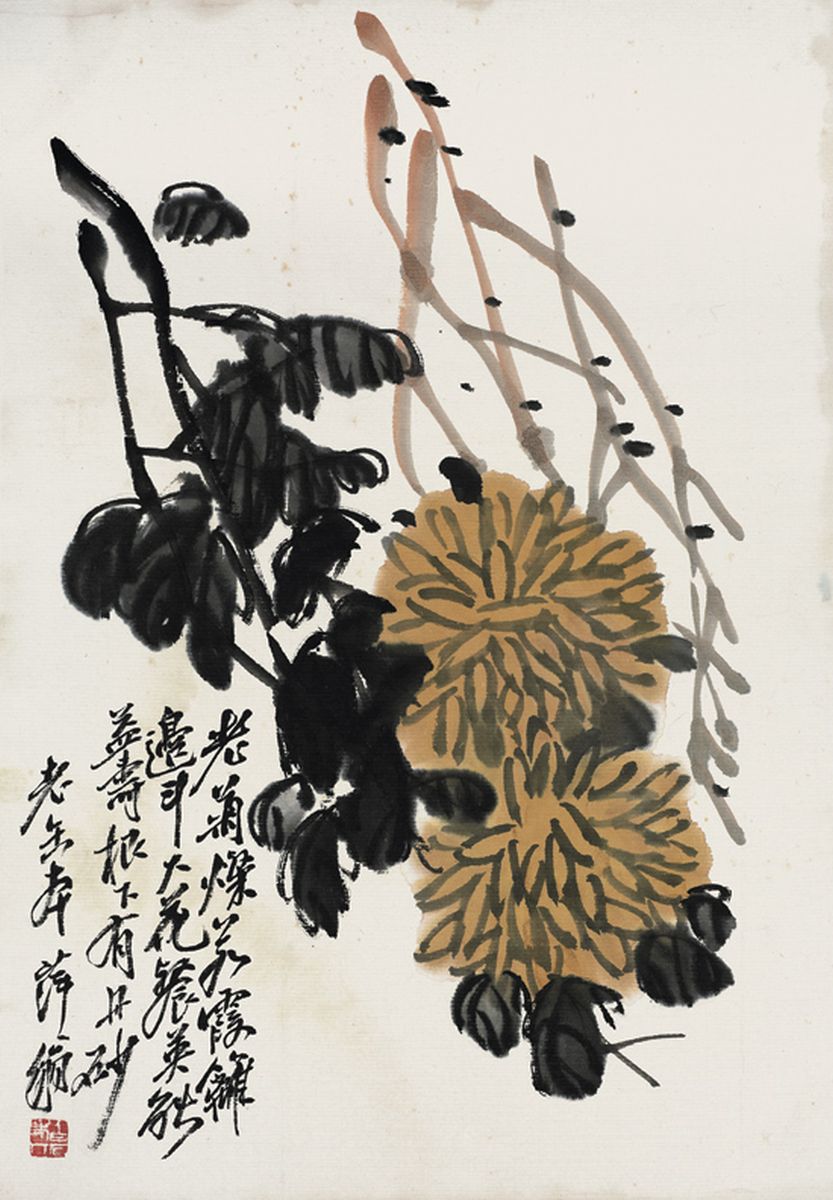 老菊燦若霞籬
邊斗大花餐英能
益壽根下有丹砂
老缶本 萍翁